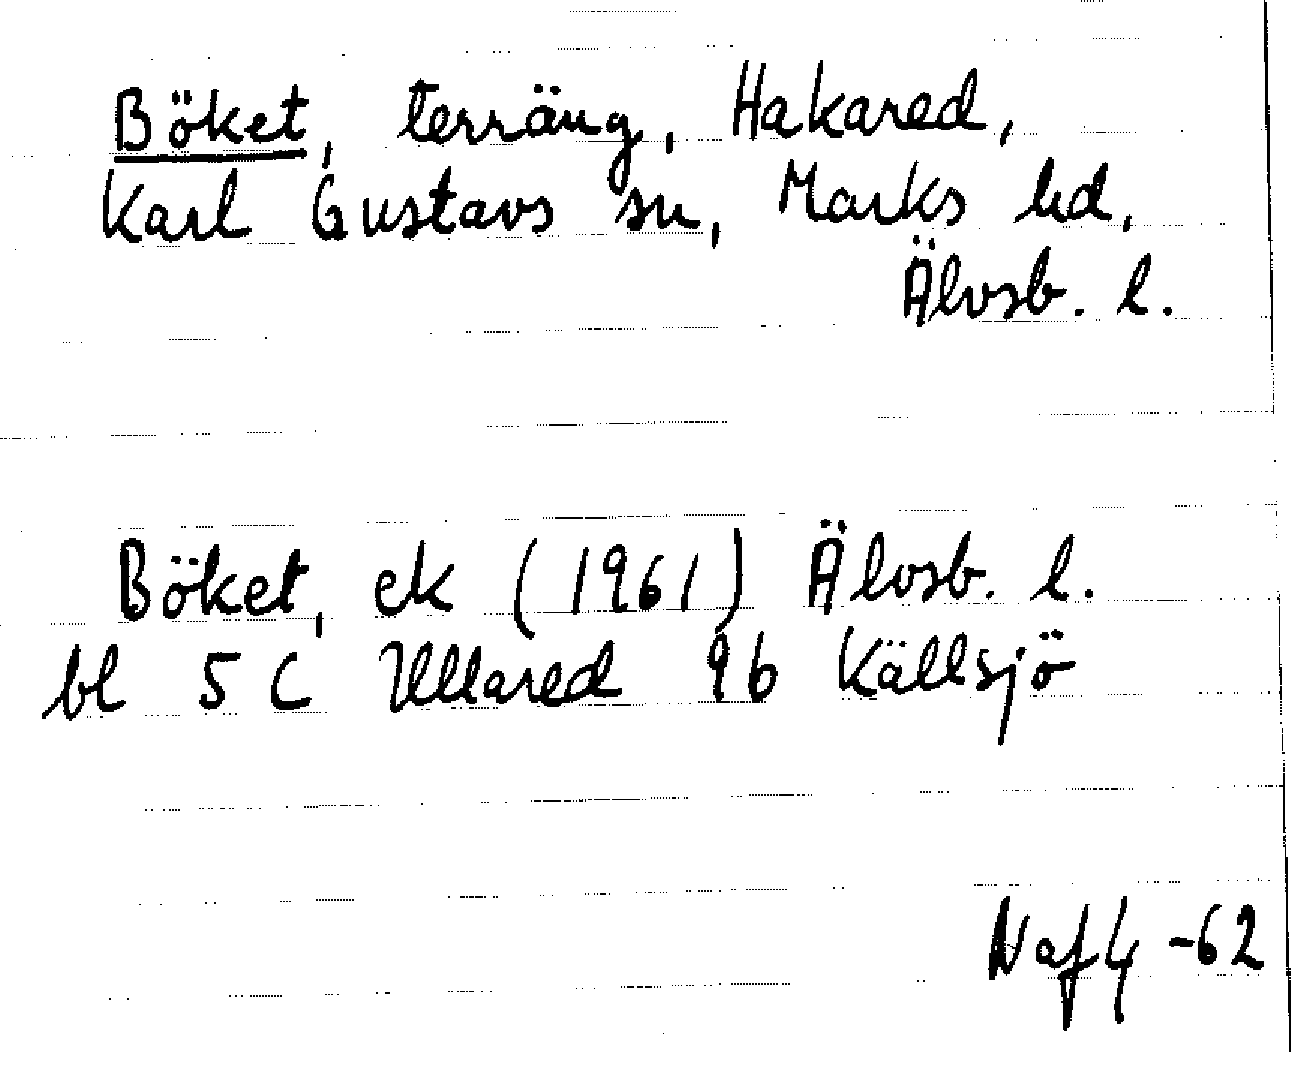 Böket, terräng, Hakared,
Karl Gustavs sn, Marks hd,
Älvsb. l.
Böket, ek (1961) Älvsb. l.
bl 5 C Ullared 9b Källsjö
-62